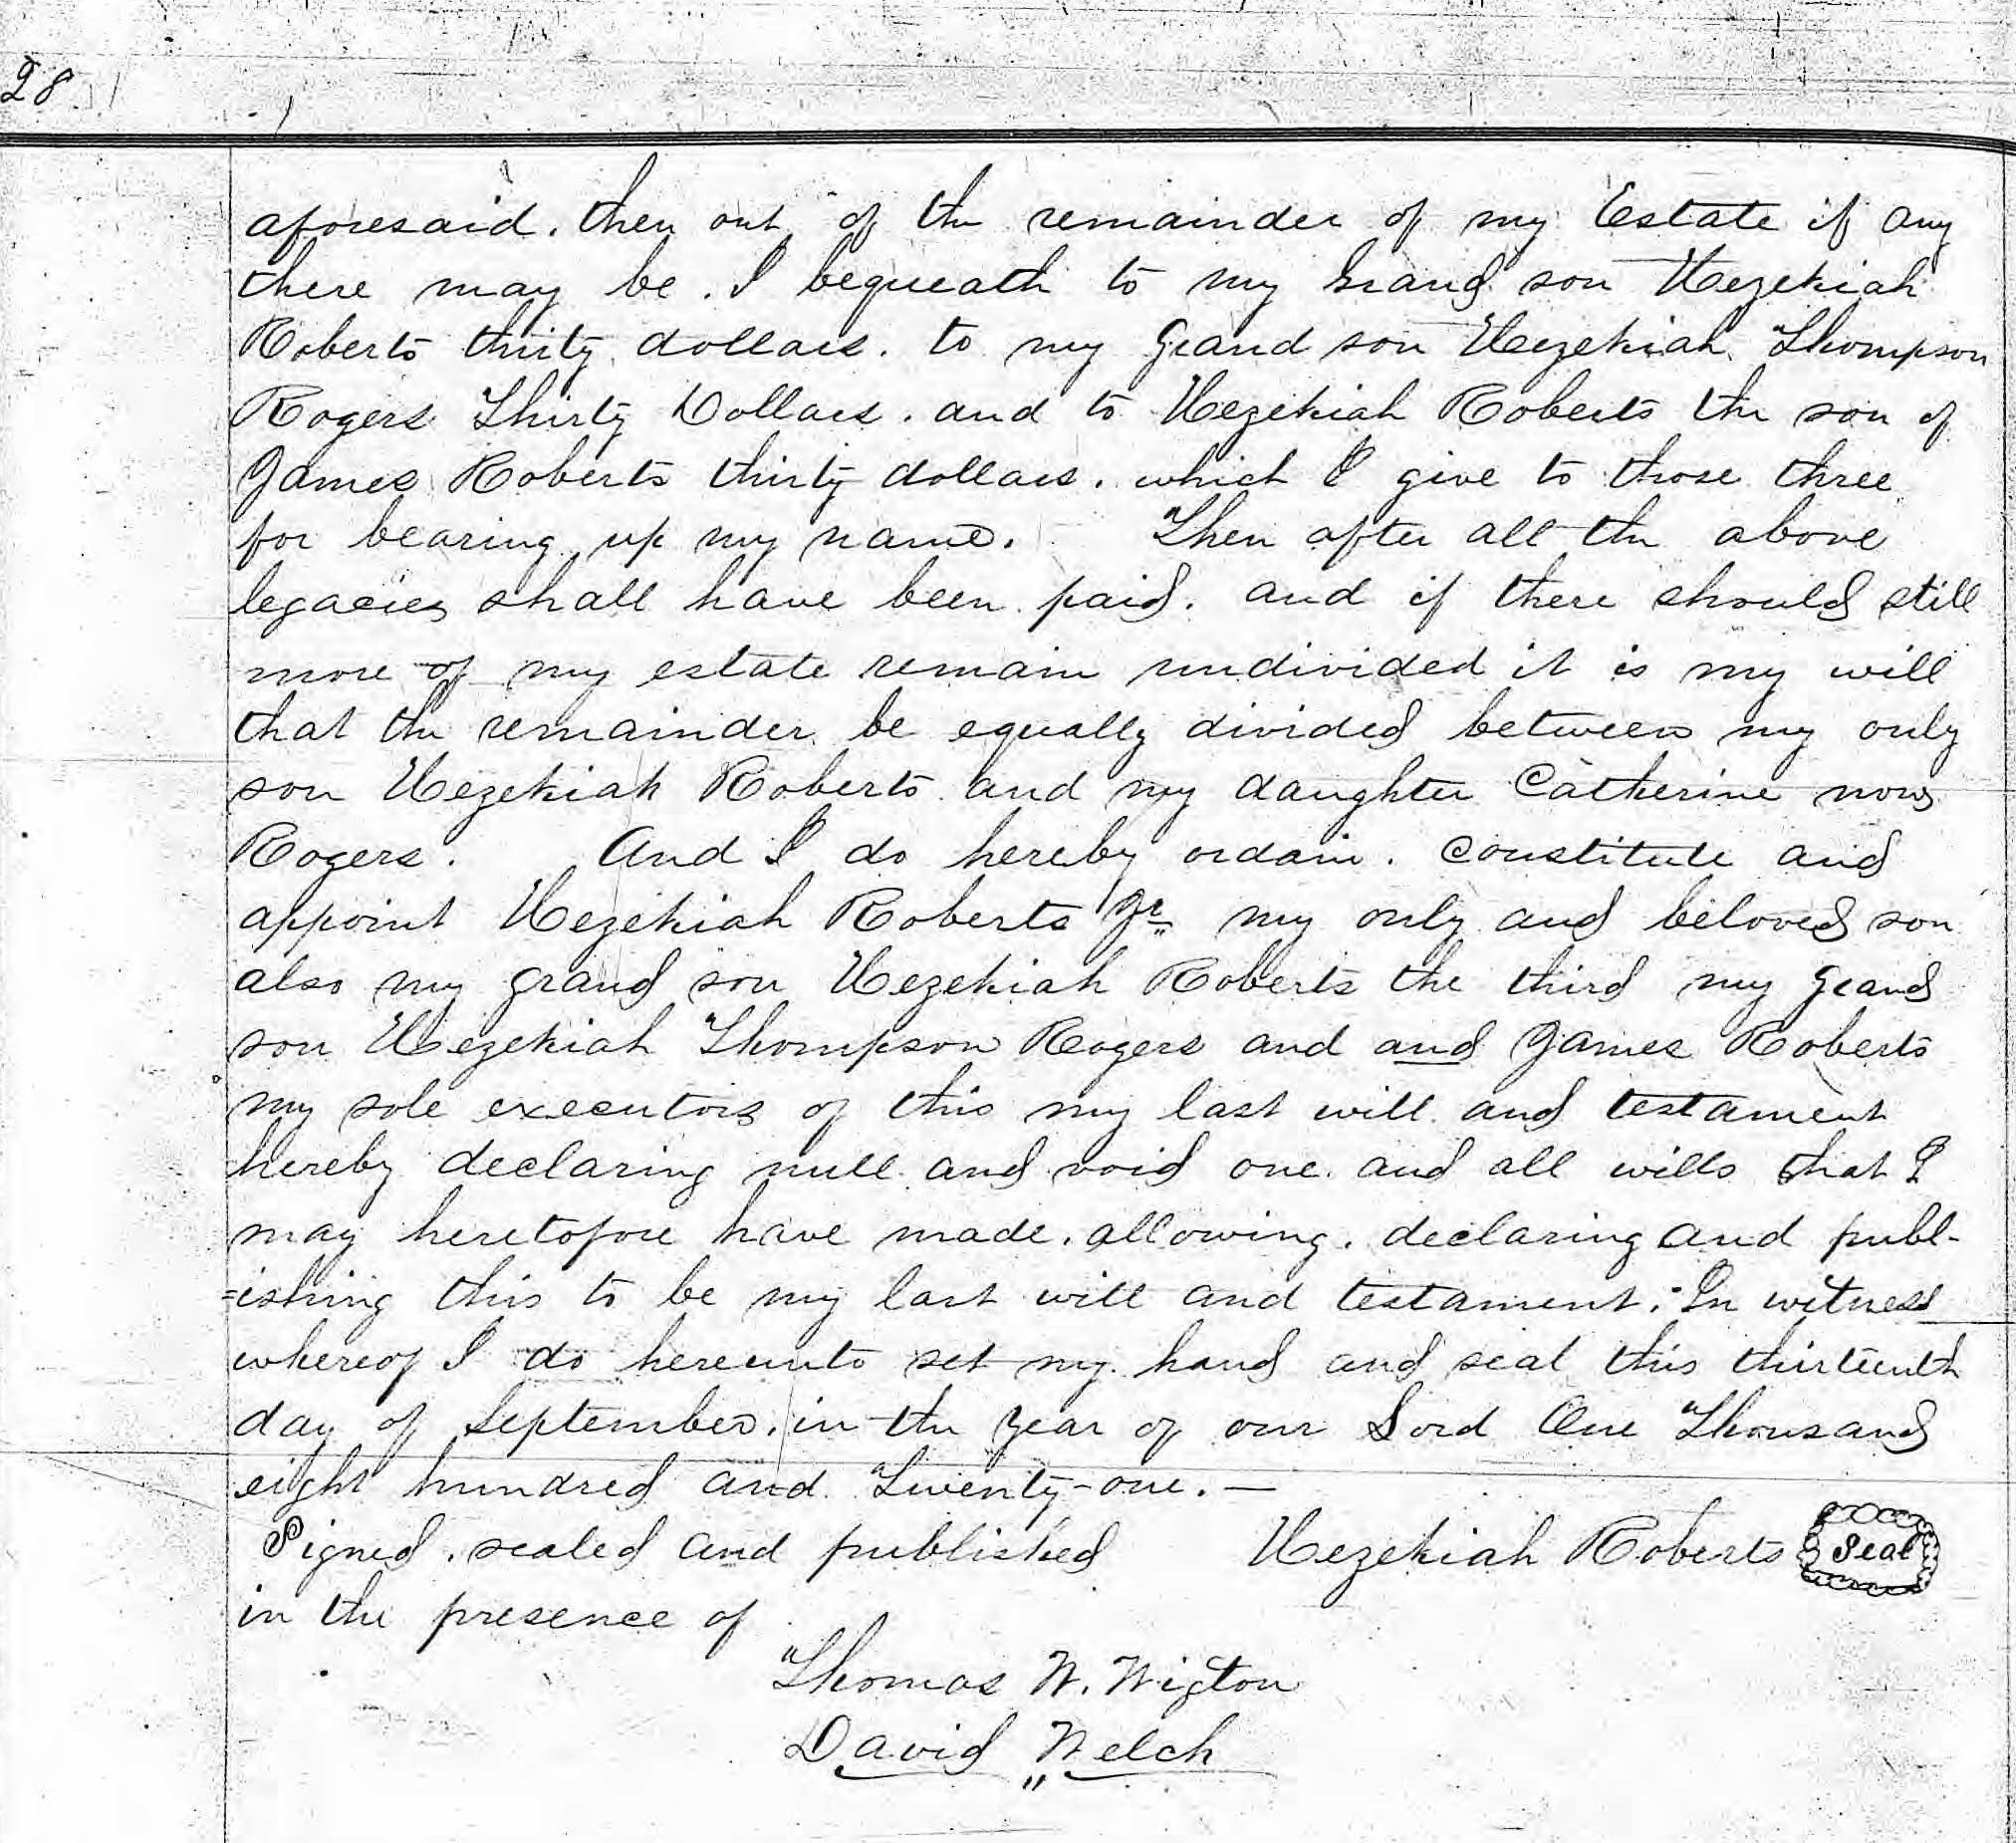 28
aforesaid. then out of the remainder of my Estate if any
there may be. I bequeath to my Grand son Hezekiah
Roberts thirty dollars. to my Grand son Hezekiah Thompson
Rogers Thirty Dollars. and to Hezekiah Roberts the son of
James Roberts thirty dollars. which I give to those three
for bearing up my name. Then after all the above
legacies shall have been paid. and if there should still
more of my estate remain undivided it is my will
that the remainder be equally divided between my only
son Hezekiah Roberts and my daughter Catherine now
Rogers. And I do hereby ordain. Constitute and
appoint Hezekiah Roberts Jr. my only and beloved son
also my grand son Hezekiah Roberts the third my Grand
son Hezekiah Thompson Rogers and and James Roberts
my sole executors of this my last will and testament
hereby declaring null and void one and all wills that I
may heretofore have made. allowing. declaring and publ-
=ishing this to be my last will and testament. In witness
whereof I do hereunto set my hand and seal this thirteenth
day of September. in the Year of our Lord One Thousand
eight hundred and Twenty-one. —
Signed. sealed and published Hezekiah Roberts Seal
in the presence of
Thomas W. Wigton
David Welch